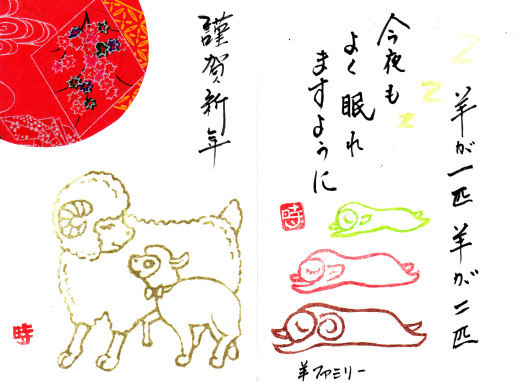 謹賀新年
時
羊が一匹 羊が二匹
z
z
z
今夜も
よく眠れ
ますように
時
羊ファミリー